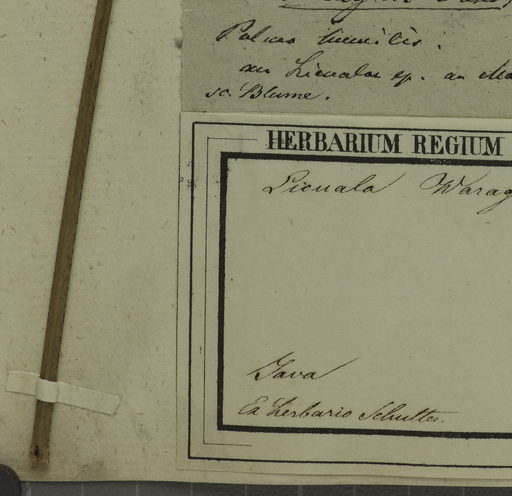 Palma humilis.
an Licuala sp. an
sec. Blume.
HERBARIUM REGIUM
Licuala Warag
Java
Ex herbario Schultes.